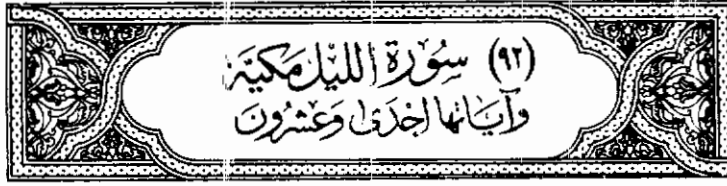 (٩٢) سُوْرَة اللَّيْل مَكِيَّة
وَآيَاتُهَا إِحْدَى وَعِشْرُونَ